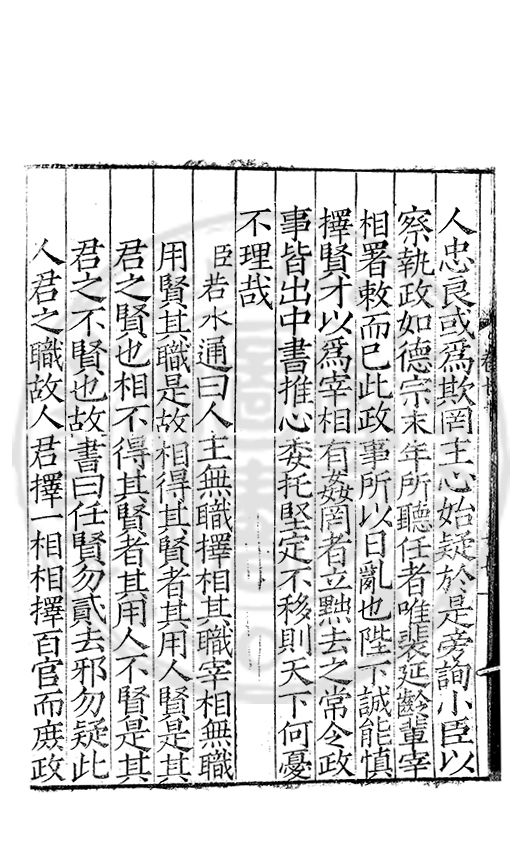 人忠良或為欺罔主心始疑於是旁詢小臣以
察執政如德宗末年所聽任者唯裴延齡輩宰
相署敕而已此政事所以日亂也陛下誠能慎
擇賢才以為宰相有姦罔者立黜去之常令政
事皆出中書推心委托堅定不移則天下何憂
不理哉
臣若水通曰人主無職擇相其職宰相無職
用賢其職是故相得其賢者其用人賢是其
君之賢也相不得其賢者其用人不賢是其
君之不賢也故書曰任賢勿貳去邪勿疑此
人君之職故人君擇一相相擇百官而庶政